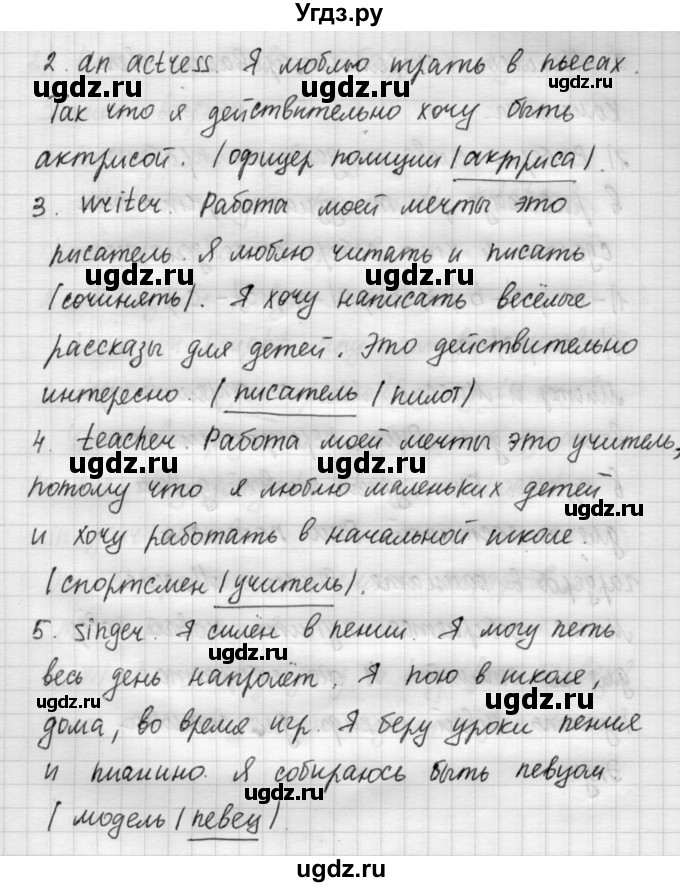 Угдз.ру
2. an actress. Я люблю играть в пьесах.
Так что я действительно хочу быть
актрисой. (офицер полиции / актриса).
3. writer. Работа моей мечты это
писатель. Я люблю читать и писать
(сочинять). Я хочу написать весёлые
рассказы для детей. Это действительно
интересно. (писатель / пилот)
4. teacher. Работа моей мечты это учитель,
потому что я люблю маленьких детей
и хочу работать в начальной школе.
(спортсмен / учитель).
5. singer. Я силён в пении. Я могу петь
весь день напролёт. Я пою в школе,
дома, во время игр. Я беру уроки пения
и пианино. Я собираюсь быть певцом
(модель / певец).
ugdz.ru